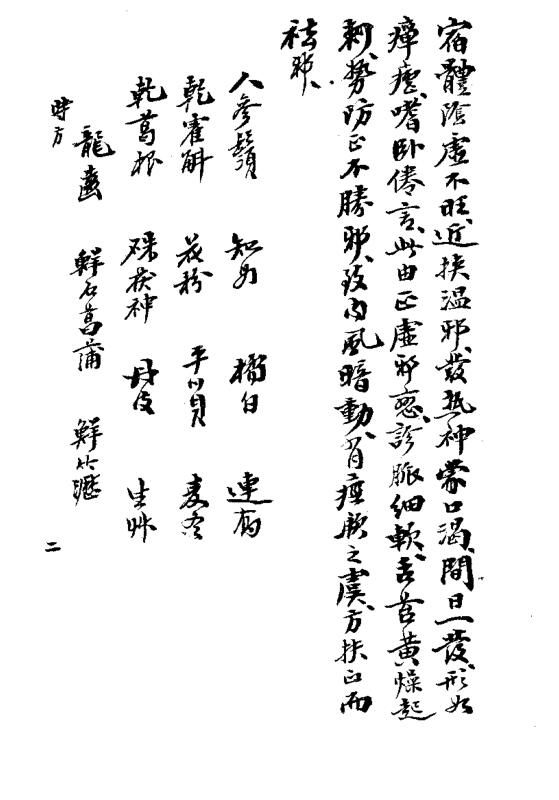 宿體陰虛不旺、近挾溫邪、發熱神蒙口渴、間日一發、形如
瘴瘧、嗜卧倦言、此由正虛邪戀、診脈細軟、舌苔黃燥起
刺、勢防正不勝邪、致內風暗動、有痙厥之虞、方扶正而
祛邪、
人參鬚 知母 橘白 連喬
乾霍斛 花粉 平川貝 麥冬
乾葛根 硃茯神 丹皮 生艸
龍齒 鮮石菖蒲 鮮竹瀝
時方
二